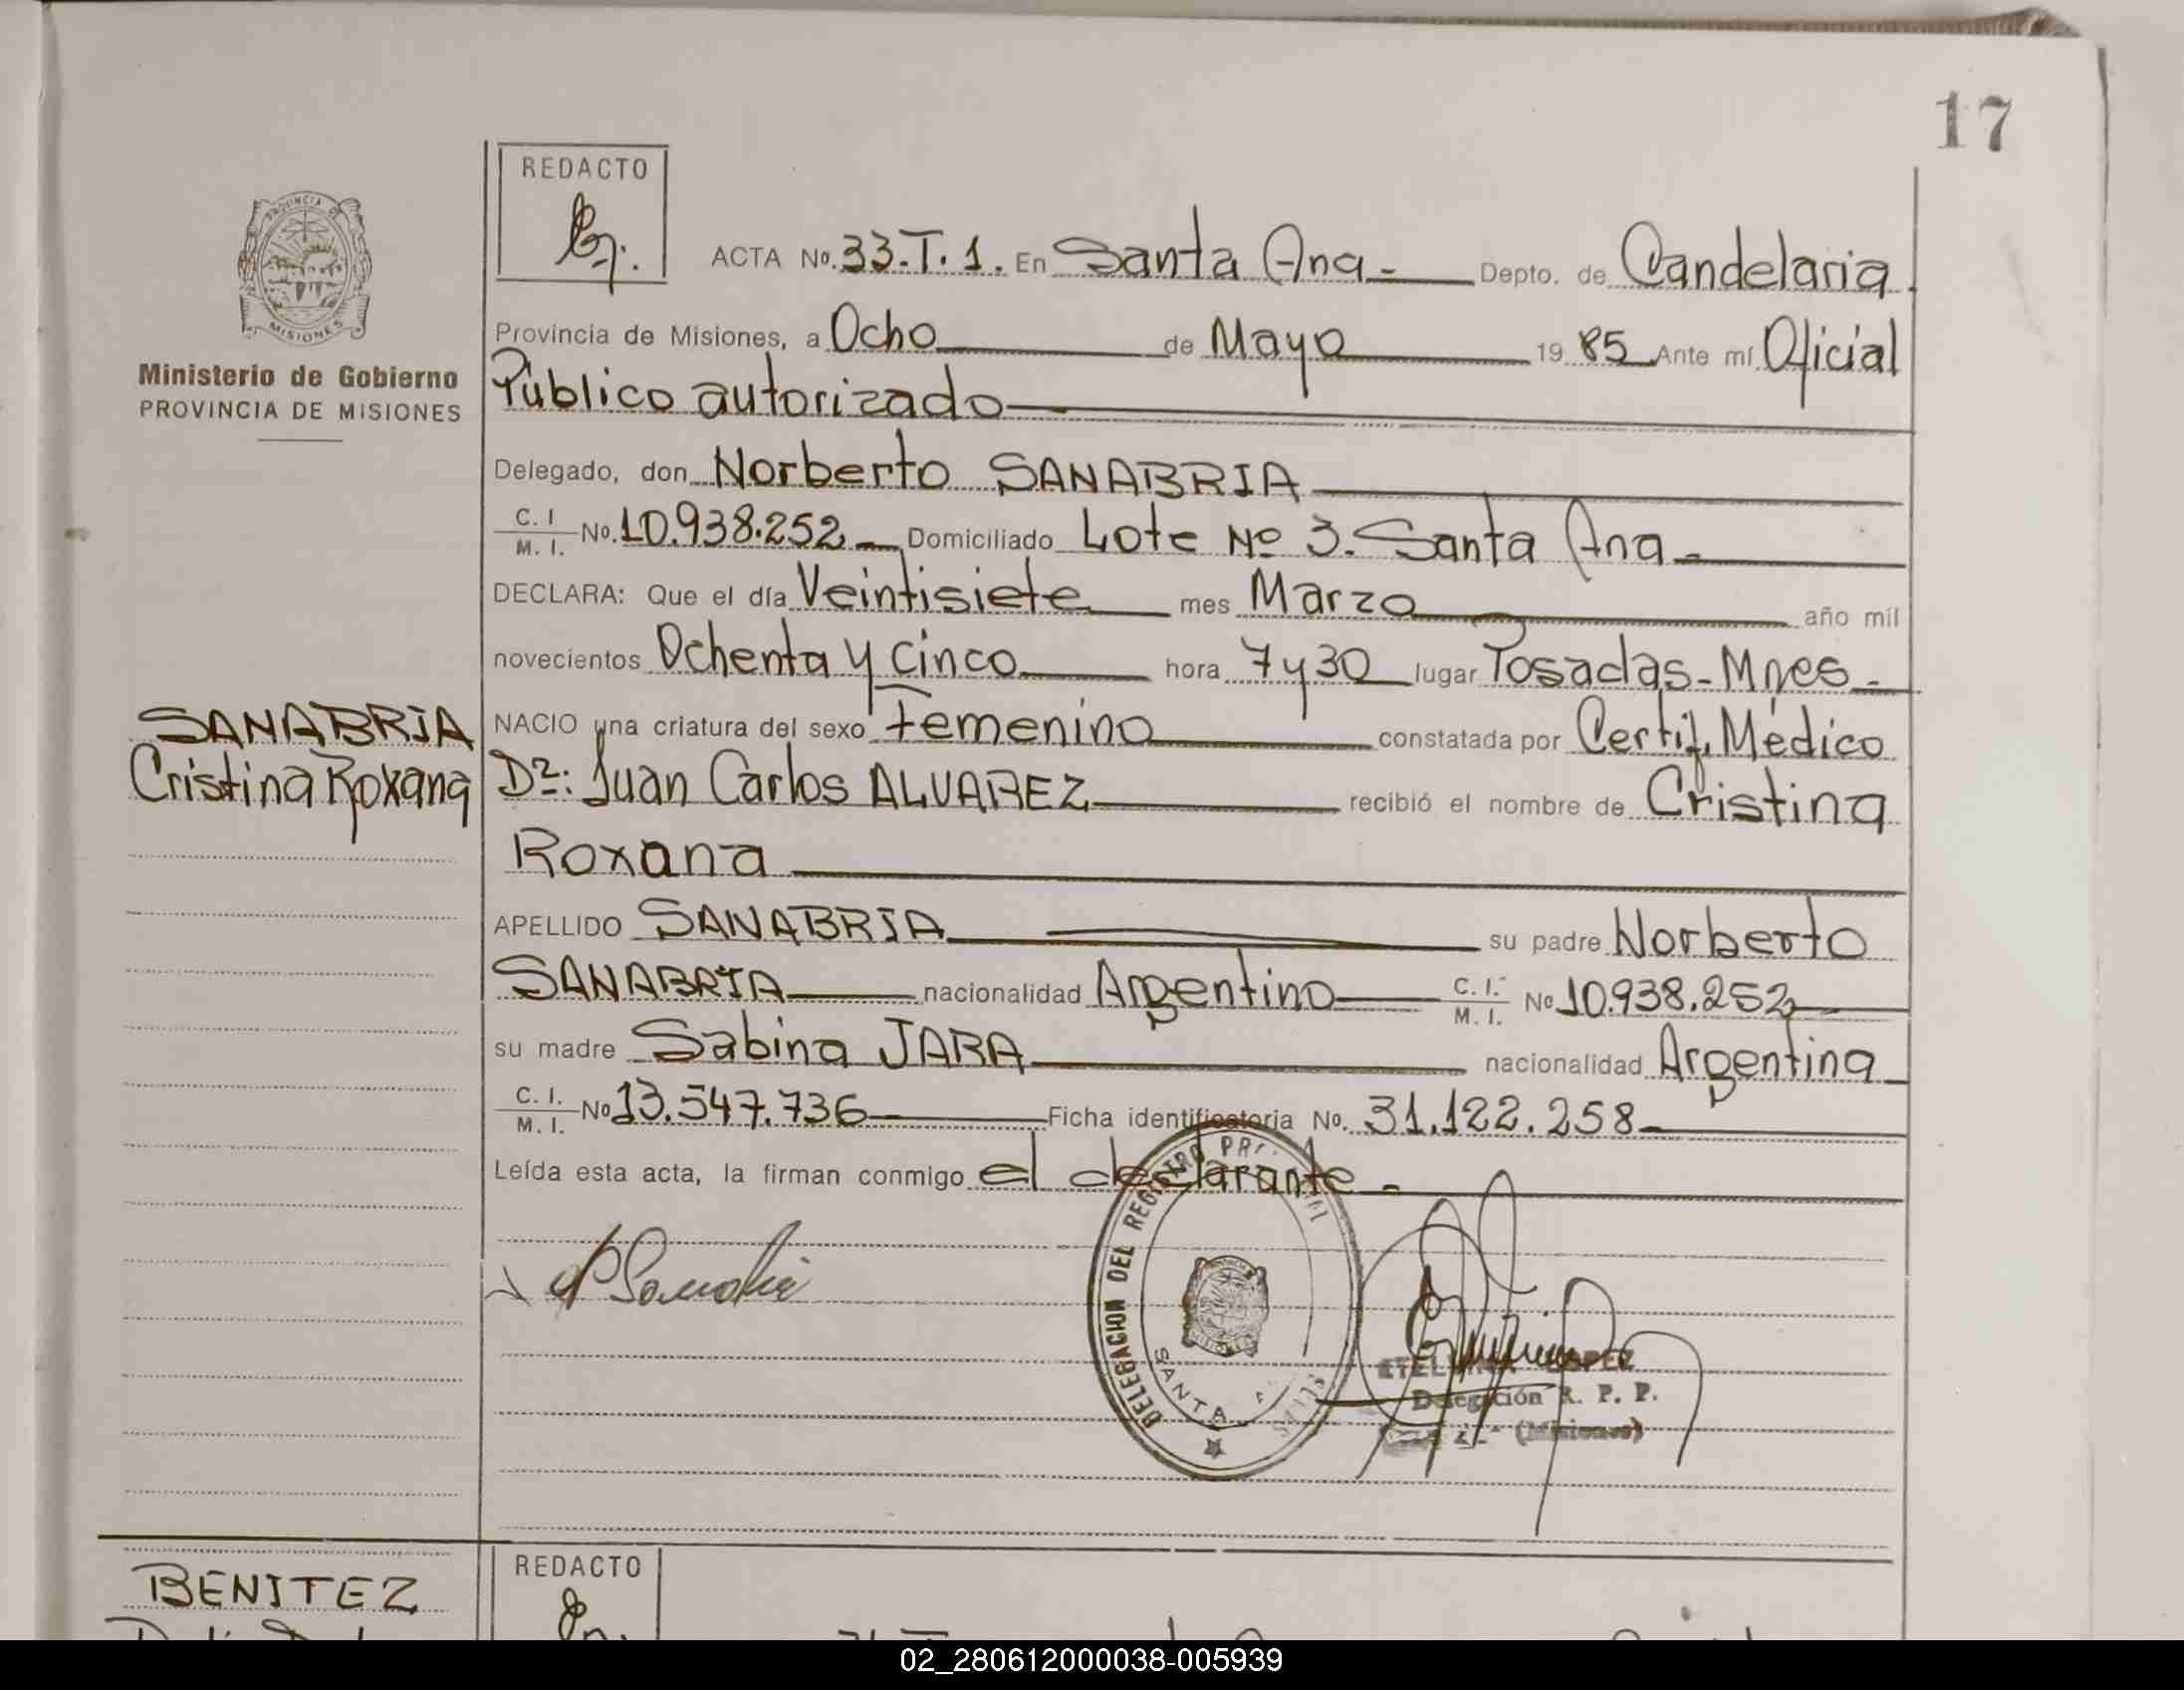 17
REDACTO
PROVINCIA DE
MISIONES
Ministerio de Gobierno
PROVINCIA DE MISIONES
ACTA No. 33.T.1. En Santa Ana - Depto. de Candelaria
Provincia de Misiones, a Ocho de Mayo 19 85 Ante mí Oficial
Público autorizado
Delegado, don Norberto SANABRIA
C. I. M. I. No. 10.938.252 Domiciliado Lote Nº 3. Santa Ana -
DECLARA: Que el día Veintisiete mes Marzo año mil
novecientos Ochenta y cinco hora 7 y 30 lugar Posadas - Mnes -
NACIO una criatura del sexo Femenino constatada por Certif. Médico
Dr: Juan Carlos ALVAREZ recibió el nombre de Cristina
Roxana
SANABRIA
Cristina Roxana
APELLIDO SANABRIA su padre Norberto
SANABRIA nacionalidad Argentino C. I. M. I. No 10.938.252
su madre Sabina JARA nacionalidad Argentina
C. I. M. I. No 13.547.736 Ficha identificatoria No. 31.122.258
Leída esta acta, la firman conmigo el declarante -
DELEGACION DEL REGISTRO
SANTA
LOPEZ
Delegación R. P. P.
(Misiones)
BENITEZ
REDACTO
02_280612000038-005939